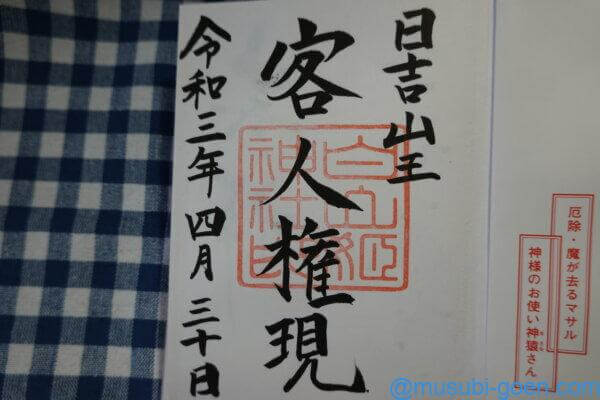 日吉山王
客人権現
令和三年四月三十日
白山姫
神社印
厄除・魔が去るマサル
神様のお使い神猿さん
まさる
@musubi-goen.com